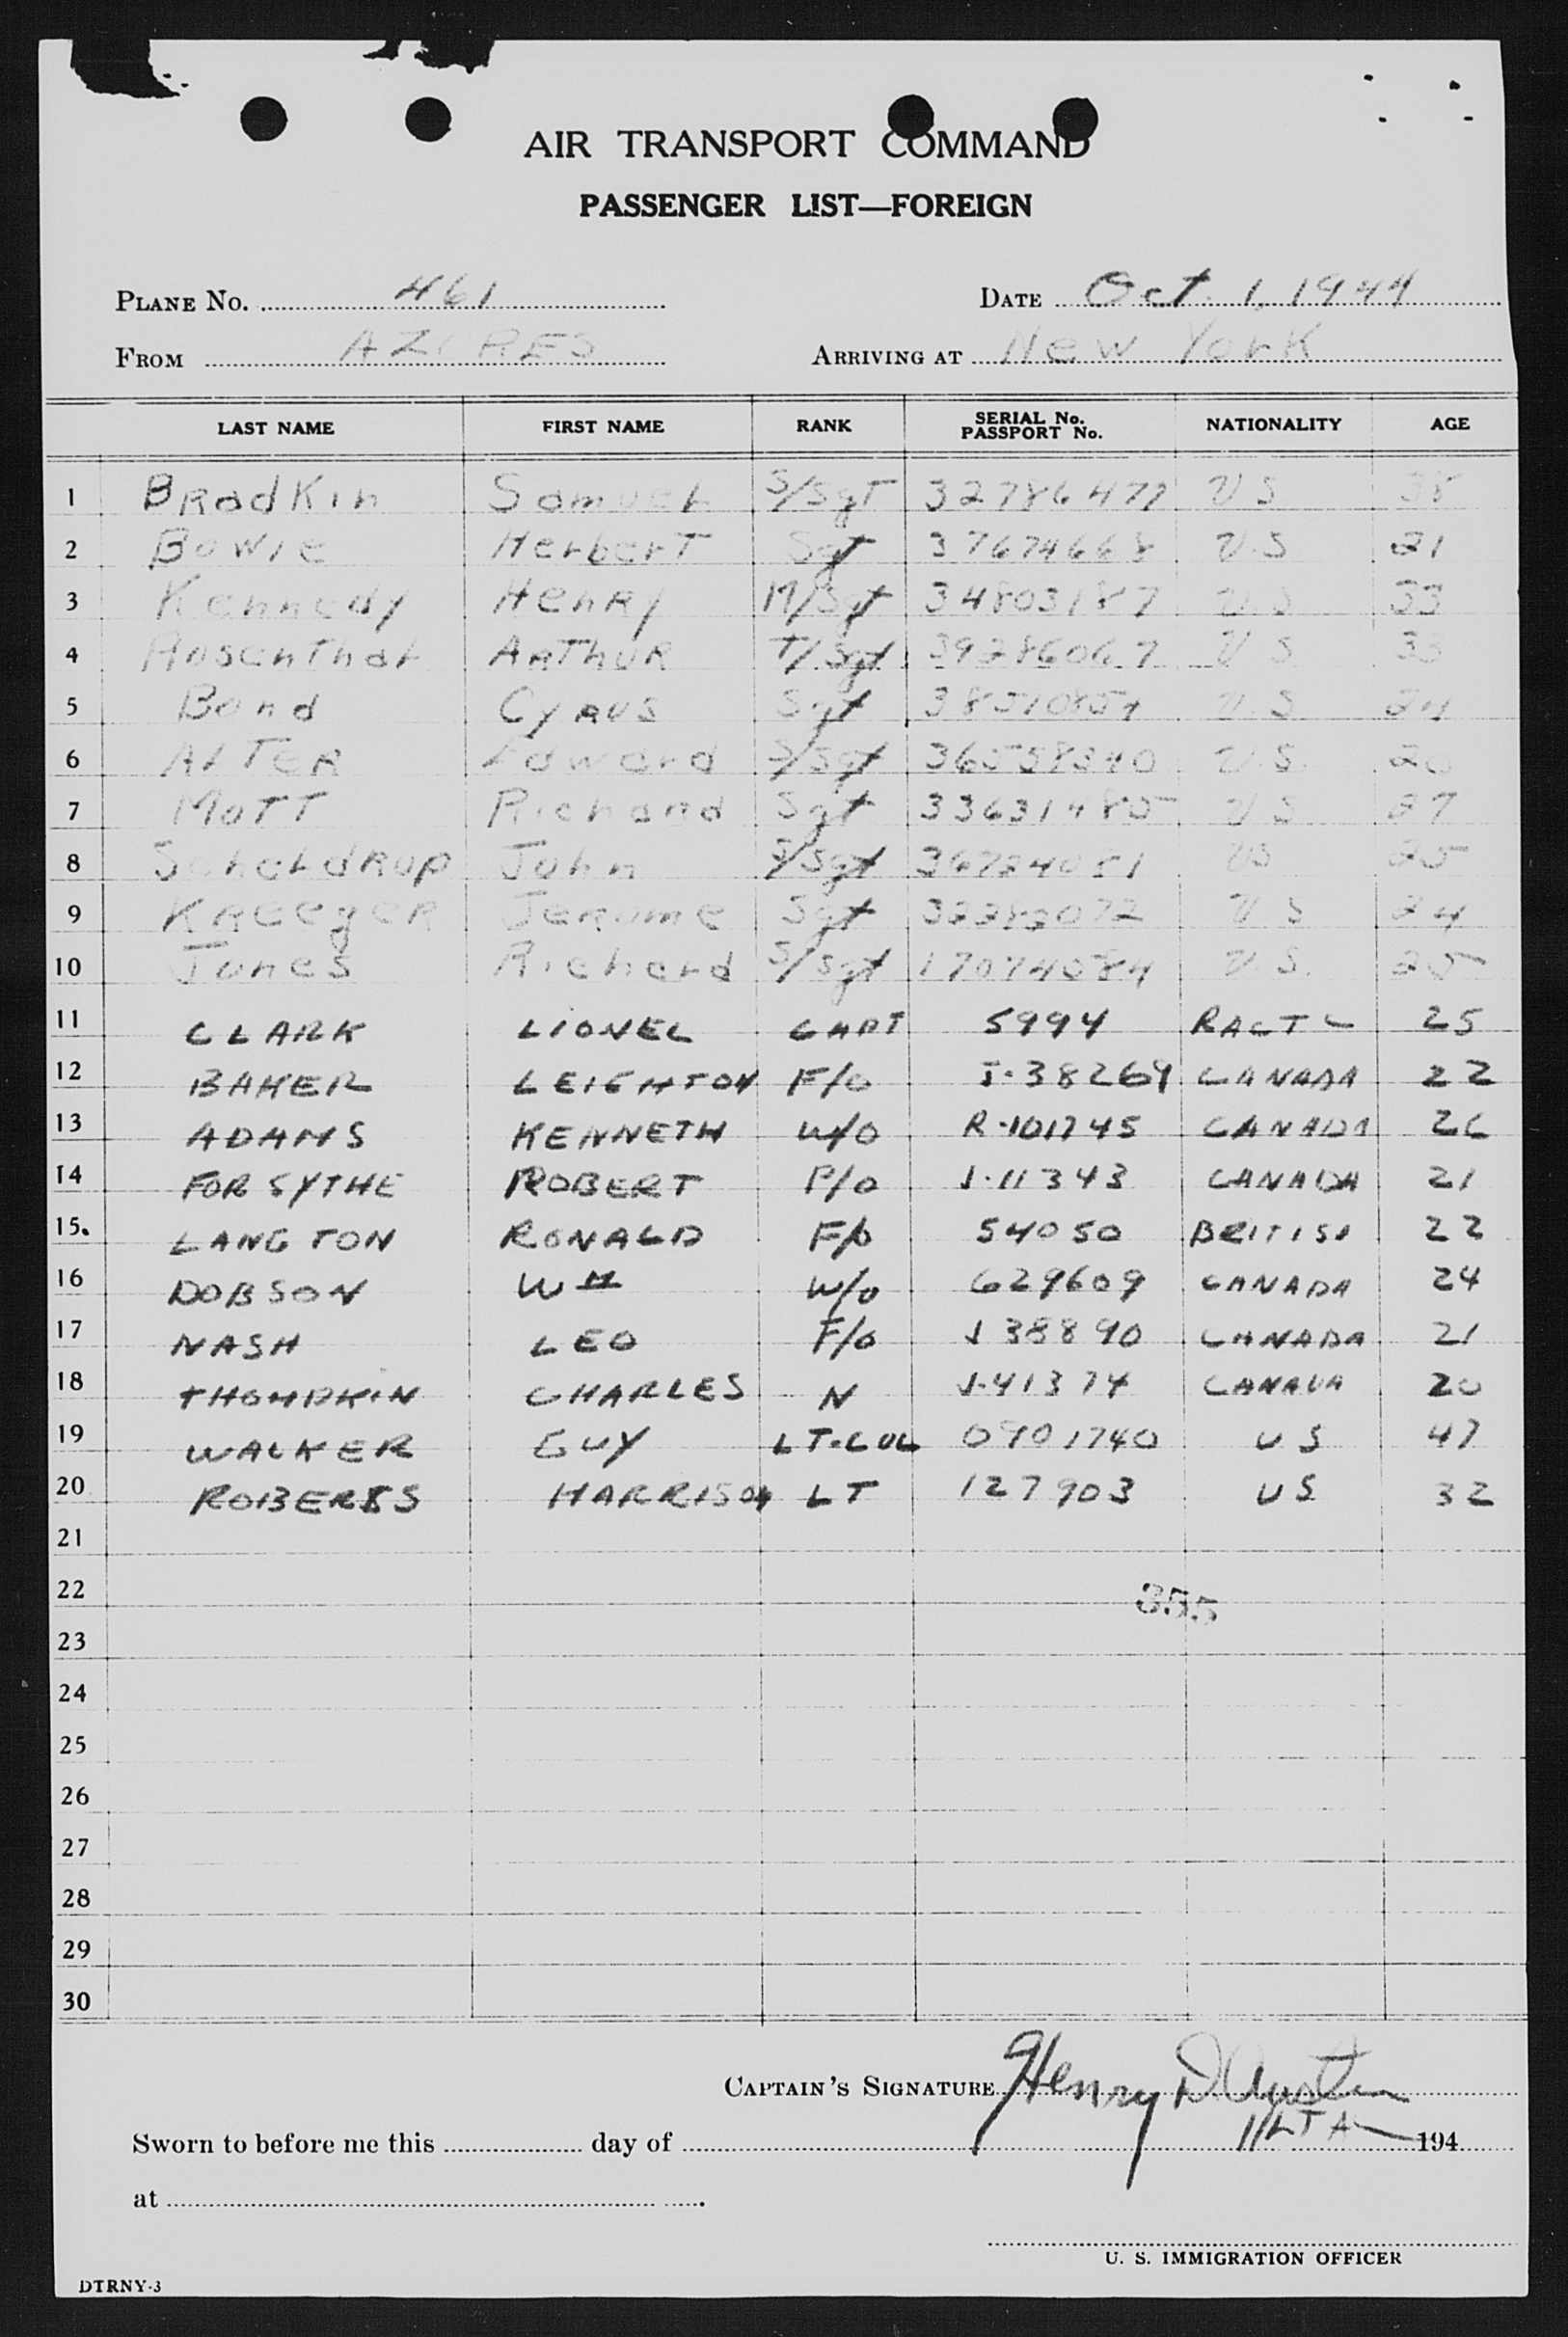 AIR TRANSPORT COMMAND
PASSENGER LIST—FOREIGN
PLANE No. 461 DATE Oct. 1, 1944
FROM AZORES ARRIVING AT New York
LAST NAME FIRST NAME RANK SERIAL No. PASSPORT No. NATIONALITY AGE
1 Bradkin Samuel S/Sgt 32786477 US 38
2 Bowie Herbert Sgt 37674668 U.S 21
3 Kennedy Henry M/Sgt 34803187 U.S 33
4 Rosenthal Arthur T/Sgt 39286067 U S 33
5 Bond Cyrus Sgt U.S 24
6 Alter Edward S/Sgt 36558340 U.S. 20
7 Mott Richard Sgt 33631485 U S 27
8 Scheldrup John S/Sgt 36724051 US 25
9 Kreeger Jerome Sgt U S 24
10 Jones Richard S/Sgt 17074084 U.S. 25
11 CLARK LIONEL CAPT 5994 25
12 BAKER LEIGHTON F/O J·38269 CANADA 22
13 ADAMS KENNETH W/O R·101745 CANADA 26
14 FORSYTHE ROBERT P/O J·11343 CANADA 21
15. LANGTON RONALD F/O 54050 BRITISH 22
16 DOBSON WM W/O 629609 CANADA 24
17 NASH LEO F/O J38890 CANADA 21
18 THOMPKIN CHARLES N J·41374 CANADA 20
19 WALKER GUY LT·COL 0901740 US 47
20 ROBERTS HARRISON LT 127903 US 32
21
22 355
23
24
25
26
27
28
29
30
CAPTAIN'S SIGNATURE Henry D. Austin
Sworn to before me this day of 194
at .
U. S. IMMIGRATION OFFICER
DTRNY-3